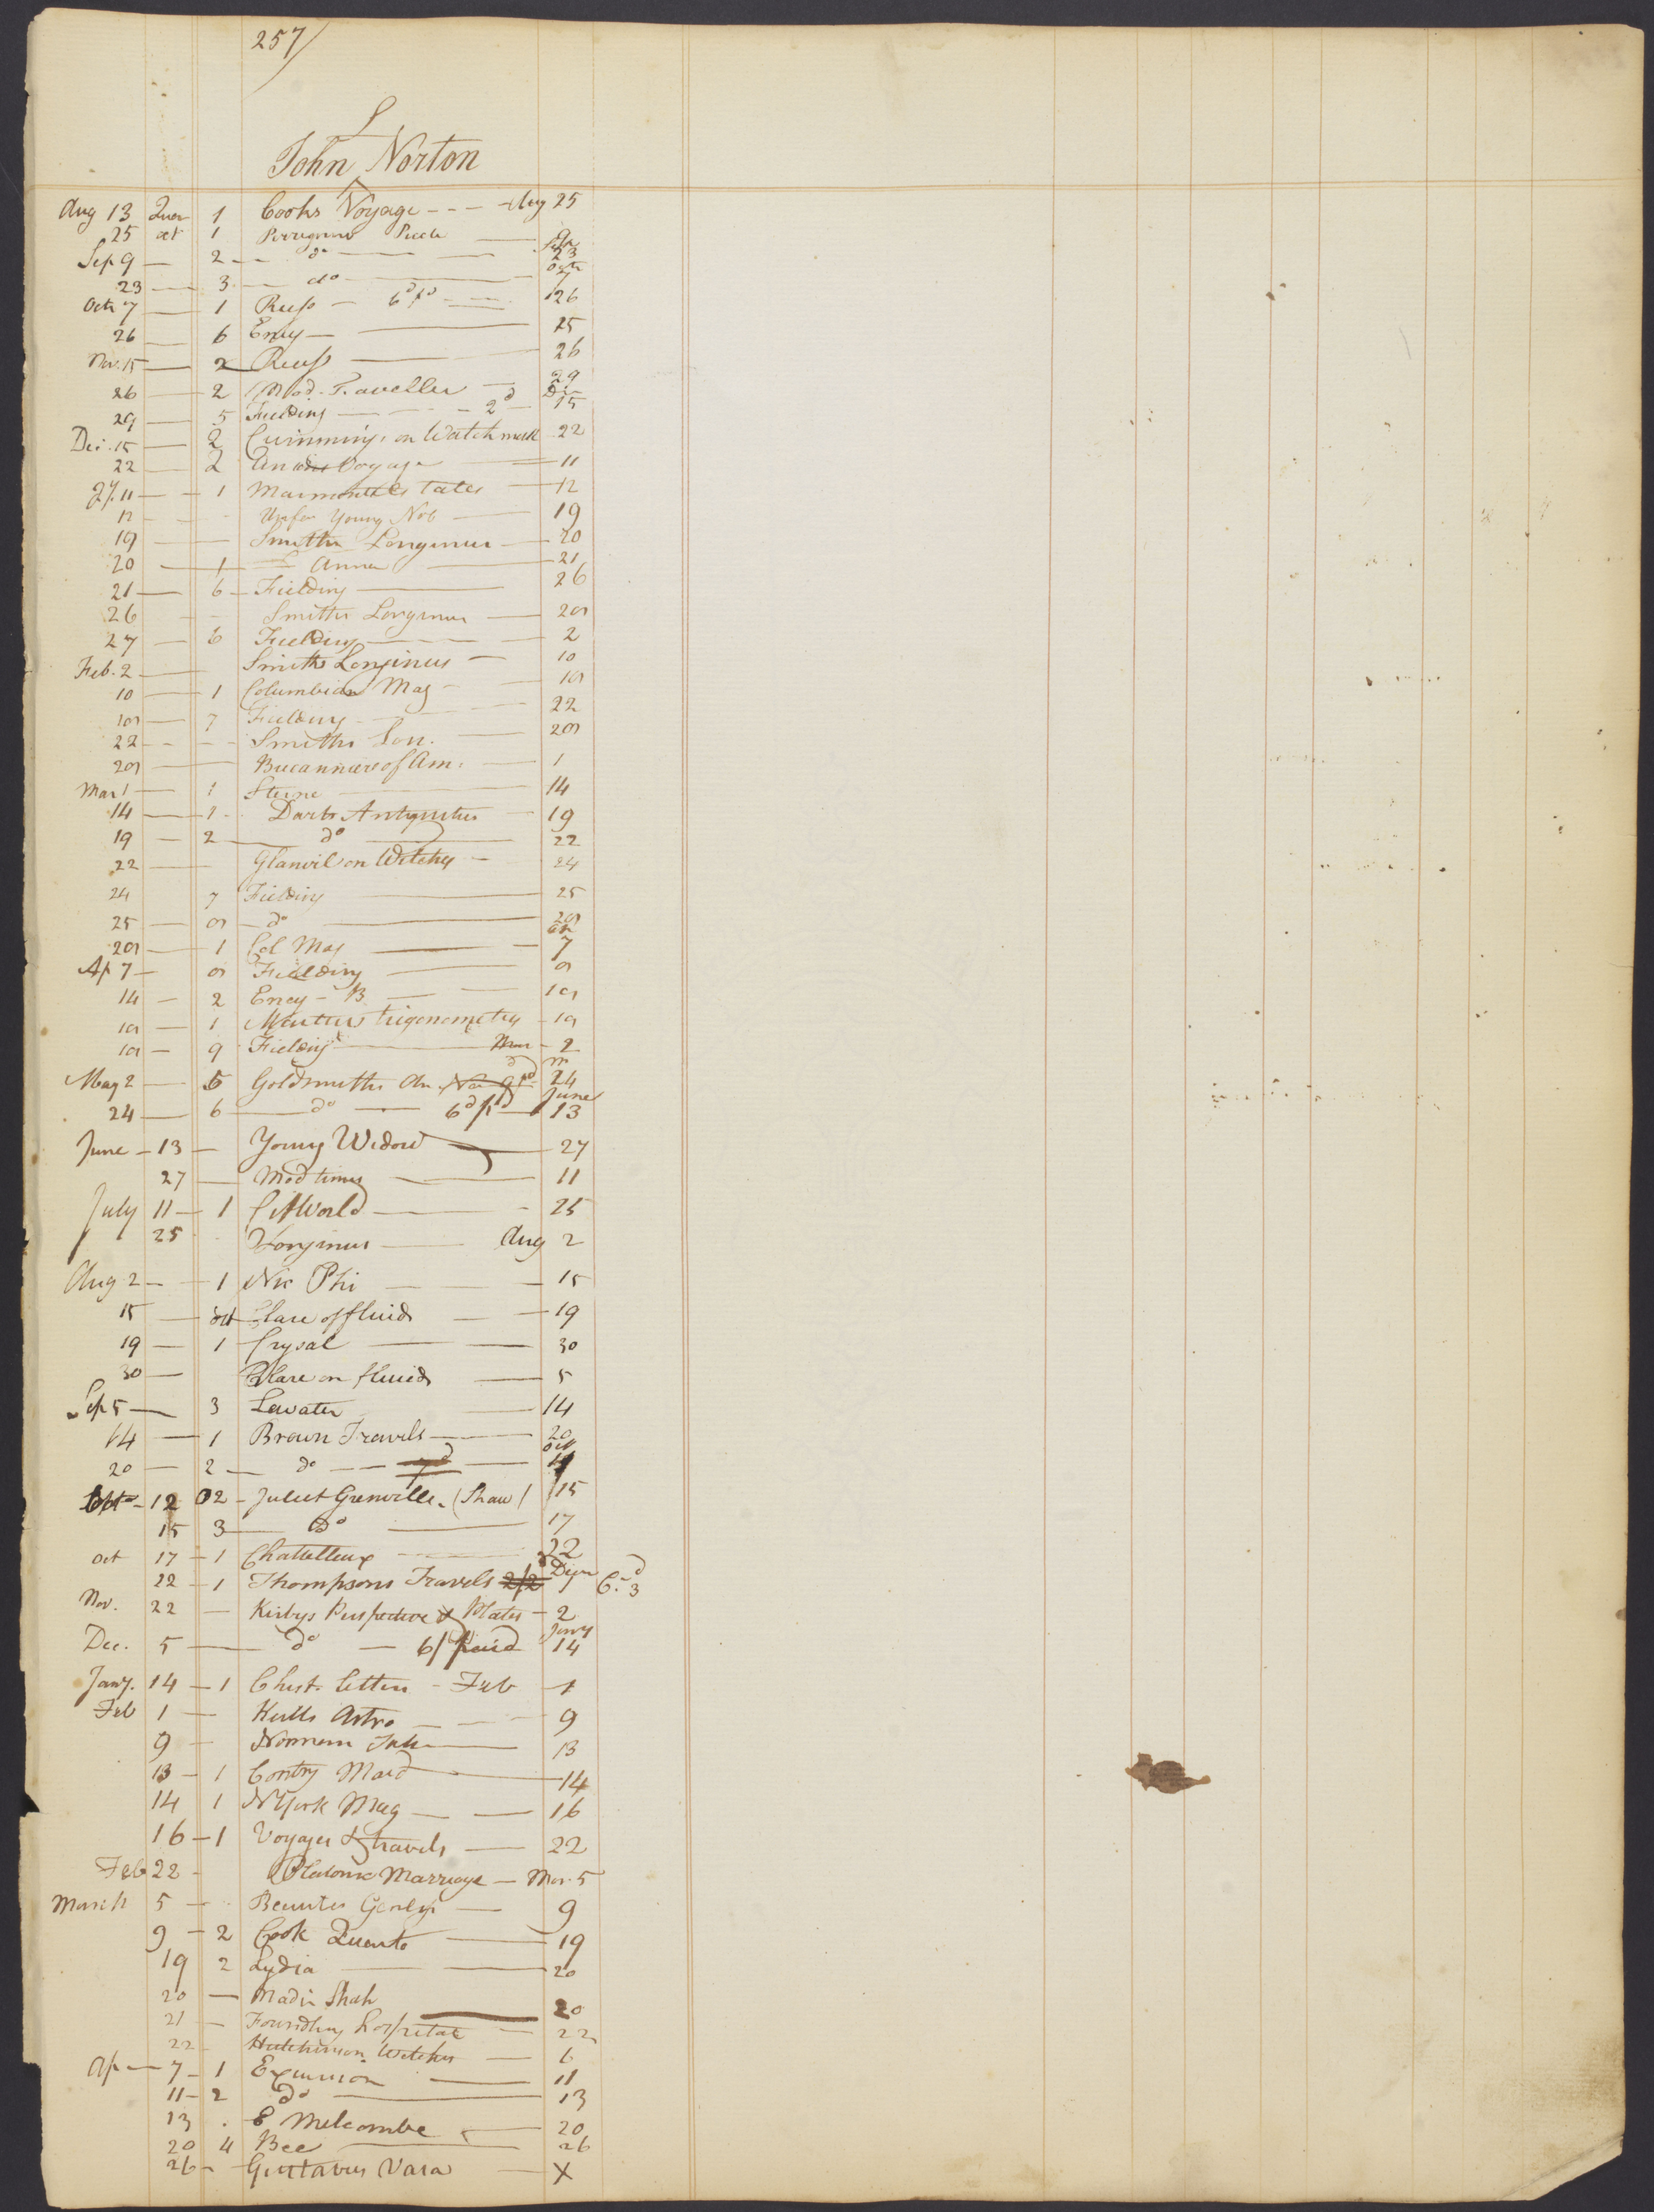 257
S
John ^ Norton
Aug 13 Quar 1 Cooks Voyage - - - Aug 25
25 oct 1 Peregrine Pickle Sep 9
Sep 9 — 2 - - do — — 23
23 — 3 — do — Octr 7
Octr 7 — 1 Reess — 6d pd — 26
26 — 6 Ency — 15
Nov. 15 — 2 Reess — 26
26 — 2 Mod. Traveller — 29
29 — 5 Fielding — 2d — De 15
Dec. 15 — 2 Cummings on Watch work 22
22 — 2 Voyage — 11
Jy. 11 — 1 Marmontells tales — 12
12 - - Unfor Young Nob — 19
19 — Smiths Longinus — 20
20 — 1 — Anna — 21
21 — 6 — Fielding — 26
26 - - Smiths Longinus — 29
27 — 6 Fielding — 2
Feb. 2 — Smiths Longinus — 10
10 — 1 Columbian Mag — 19
19 — 7 Fielding — 22
22 - - Smiths Lon. — 29
29 — Bucanniers of Am. — 1
Mar 1 — 1 Sterne — 14
14 — 1 - Darts Antiquities — 19
19 — 2 — do — 22
22 — Glanvil on Witches — 24
24 7 Fielding — 25
25 — 9 — do — 29
29 — 1 Col Mag — 7
Ap 7 — 9 Fielding — 9
14 — 2 Ency - B — 19
19 — 1 Martins trigonometry — 19
19 — 9 Fielding — 2
May 2 — 5 Goldsmiths An. Na 9d pd 24
24 — 6 — do — 6d pd June 13
June - 13 — Young Widow — 27
27 — Mod times — 11
July 11 — 1 Cit World — 25
25 Longinus — Aug 2
Aug 2 — 1 Nic Phi — 15
15 — Clare of fluids — 19
19 — 1 Crysal — 30
30 — Clare on fluids — 5
Sep 5 — 3 Lavater — 14
14 — 1 Brown Travels — 20
20 — 2 — do — — Oct
12 2 - Juliet Grenville. (Shaw) 15
15 3 — Do — 17
Oct 17 - 1 Chattelleux — 22
22 - 1 Thompsons Travels 2/2 7 C. 3d
Nov. 22 — Kirbys Perspective & Plates - 2
Dec. 5 — do — 6/ paid Janry 14
Janry. 14 - 1 Chest. letters - Feb 1
Feb 1 — Kells Astro — 9
9 — 13
13 - 1 Contry Maid — 14
14 1 N York Mag — 16
16 - 1 Voyages & travels — 22
Feb 22 - Platonic Marriage — Mar. 5
March 5 — 9
9 - 2 Cook Quarto — 19
19 2 Lydia — 20
20 — Nadir Shah 20
21 — Foundling hospital — 22
22 - Hutchinson Witches — 6
Ap — 7 - 1 Excursion — 11
11 - 2 do — 13
13 . E Melcombe — 20
20 4 Bee — 26
26 - Gustavus Vasa — X